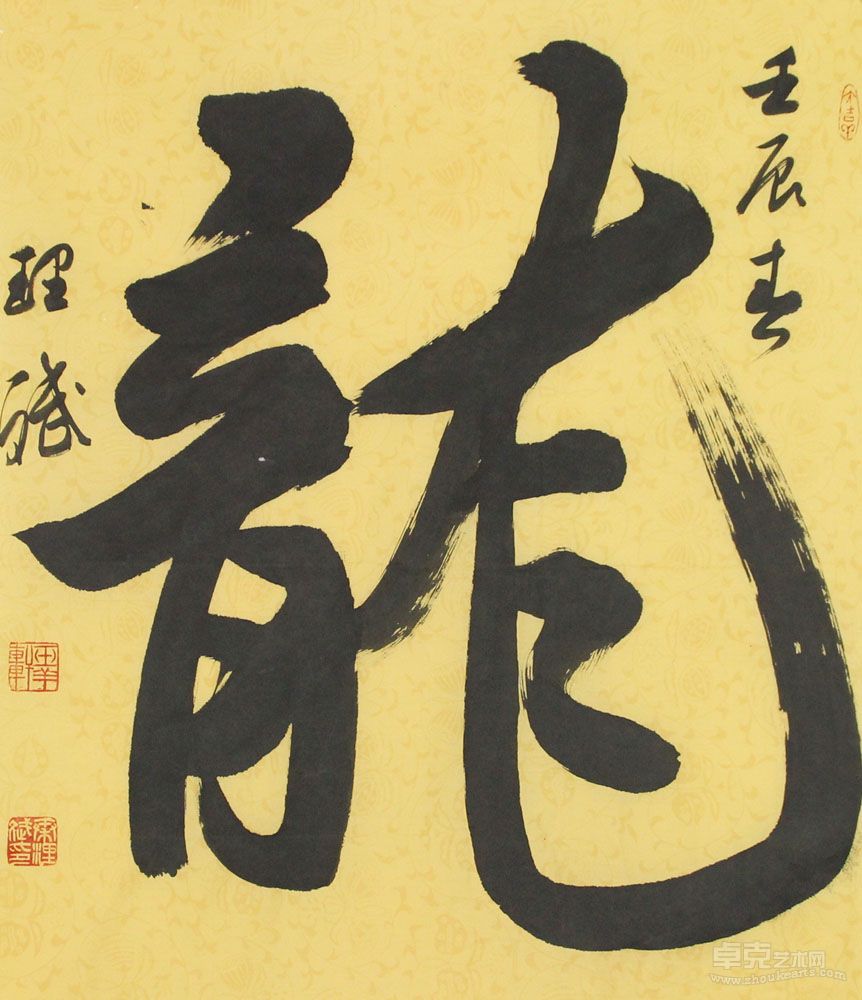 壬辰春
龍
理斌
卓克艺术网
www.zhoukearts.com